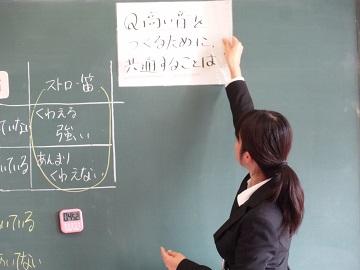 Q 高い音を
つくるために、
共通することは
ストロー笛
ていない
くわえる
強い
ている
あんまり
くわえない
いている
てない